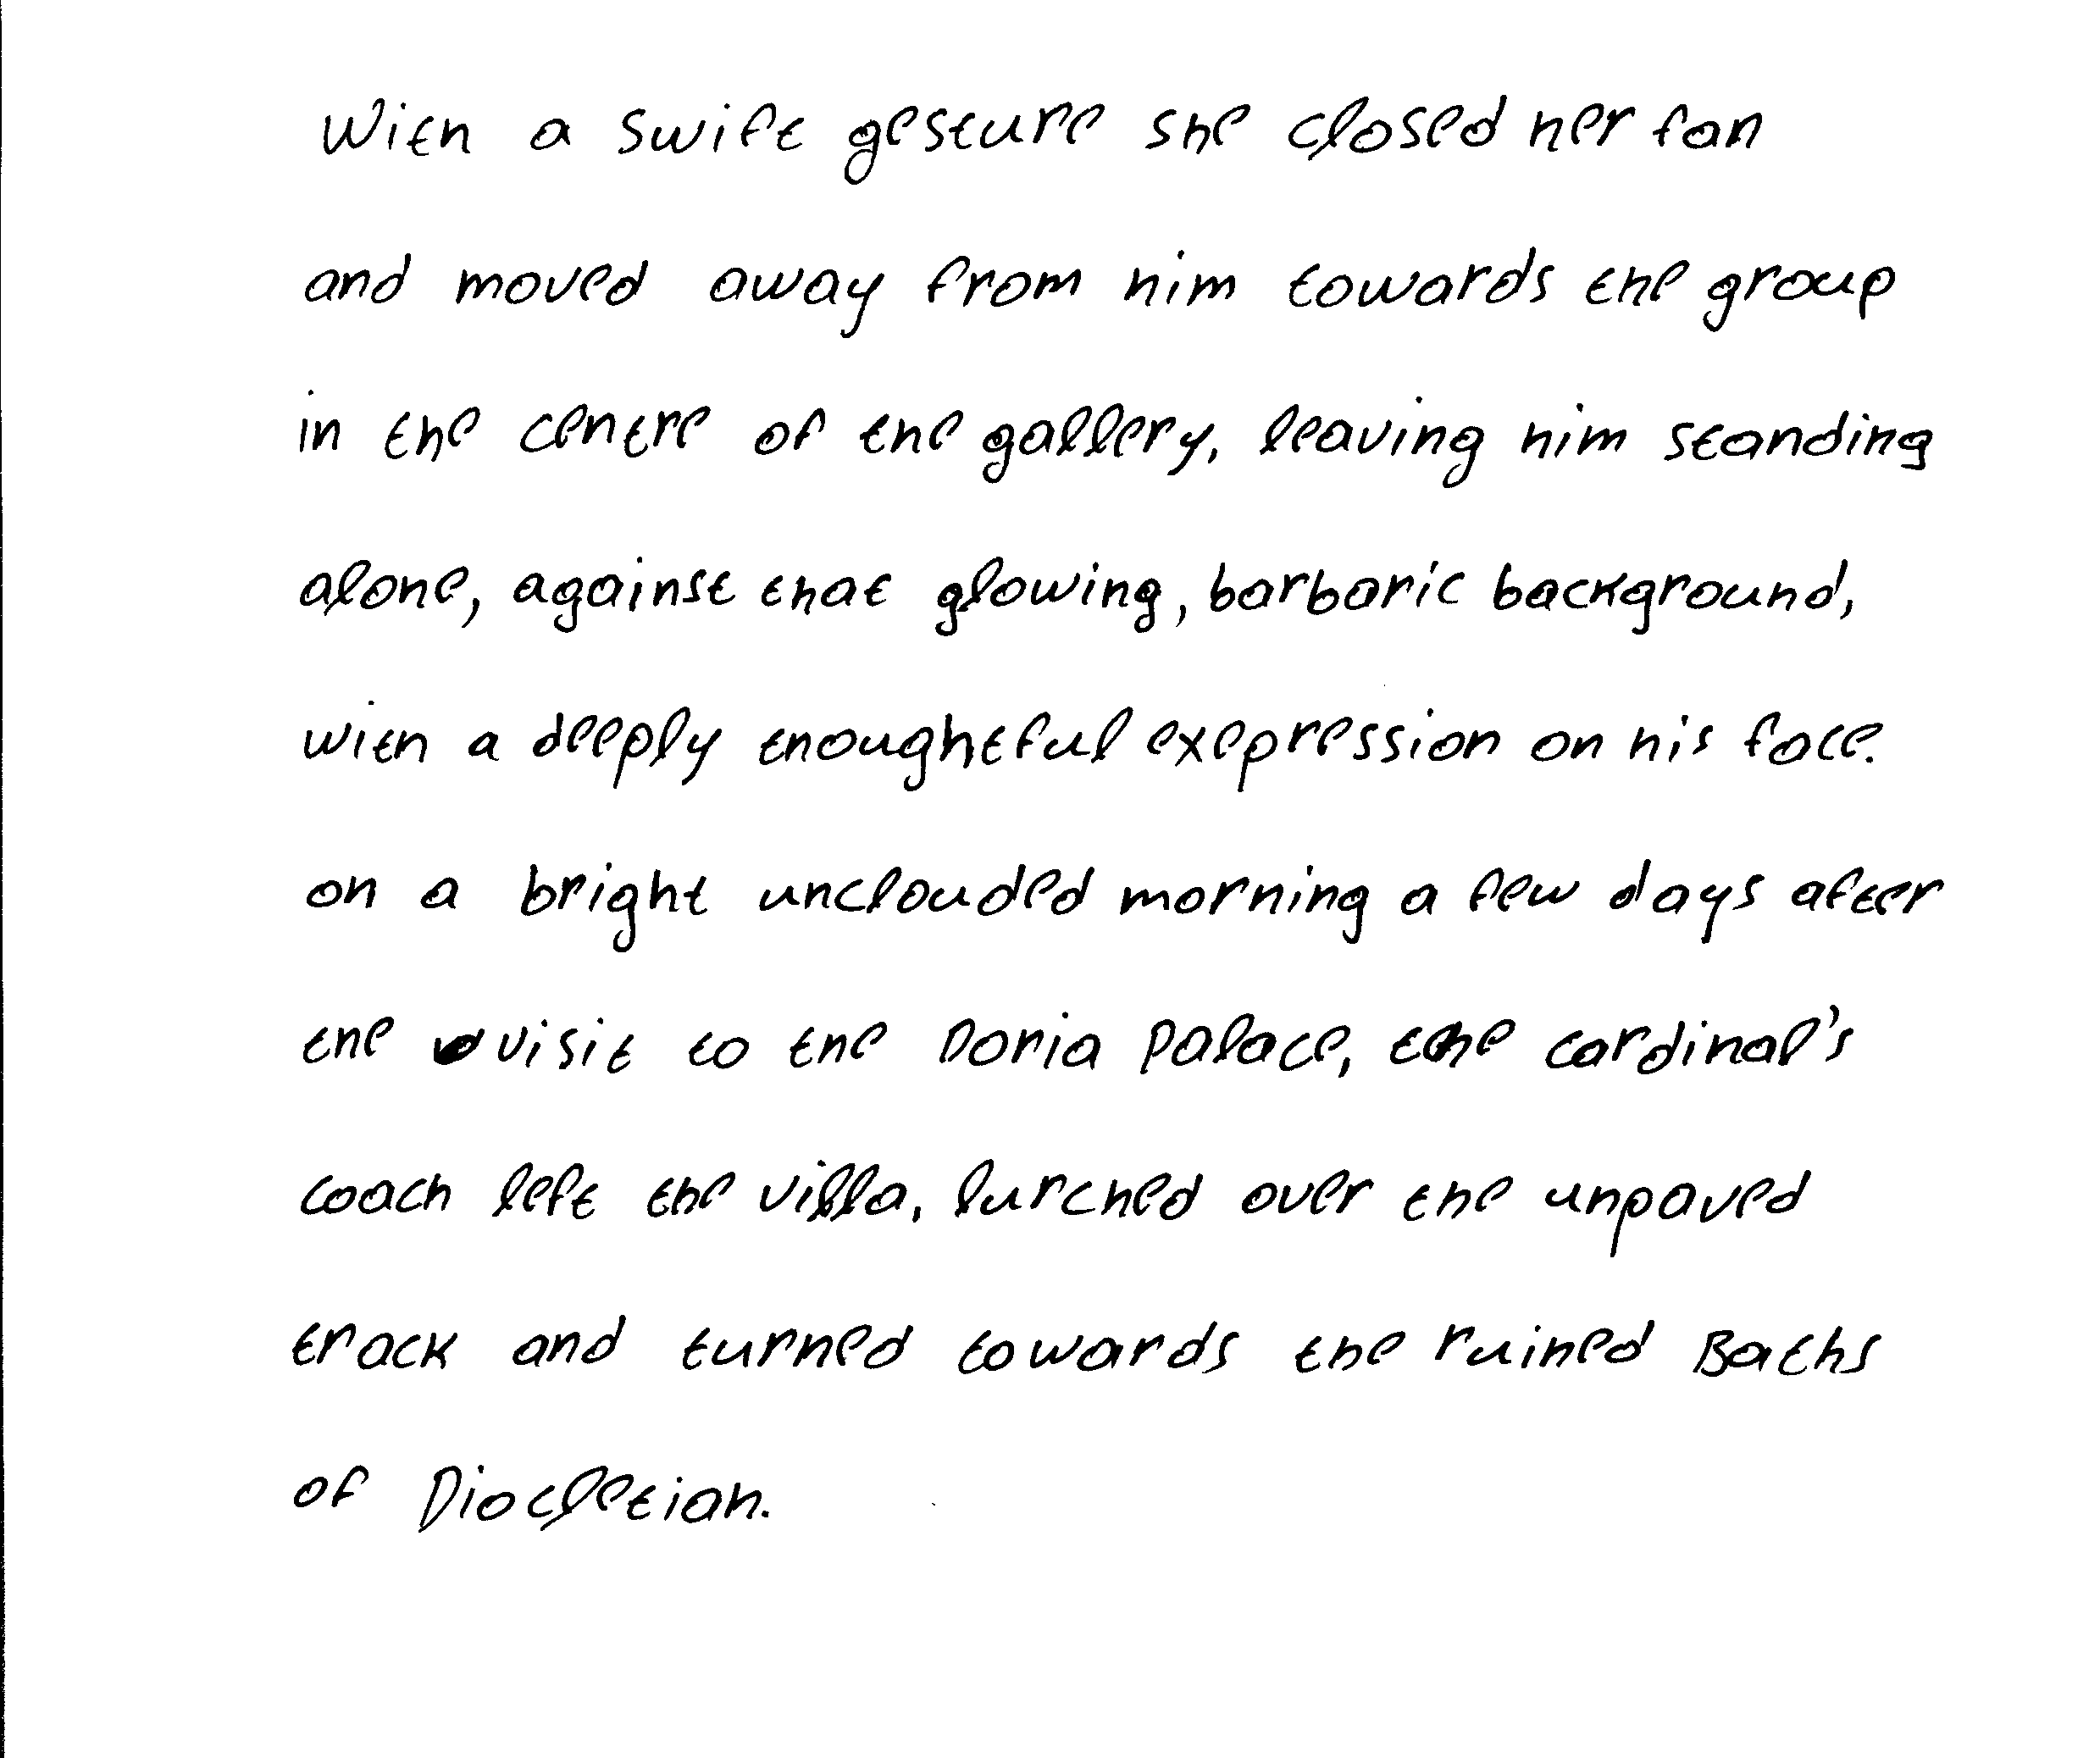 With a swift gesture she closed her fan
and moved away from him towards the group
in the centre of the gallery, leaving him standing
alone, against that glowing, barbaric background,
with a deeply thoughtful exepression on his face.
on a bright unclouded morning a few days after
the visit to the Doria Palace, the cardinal's
coach left the villa, lurched over the unpaved
track and turned towards the ruined Baths
of Diocletian.